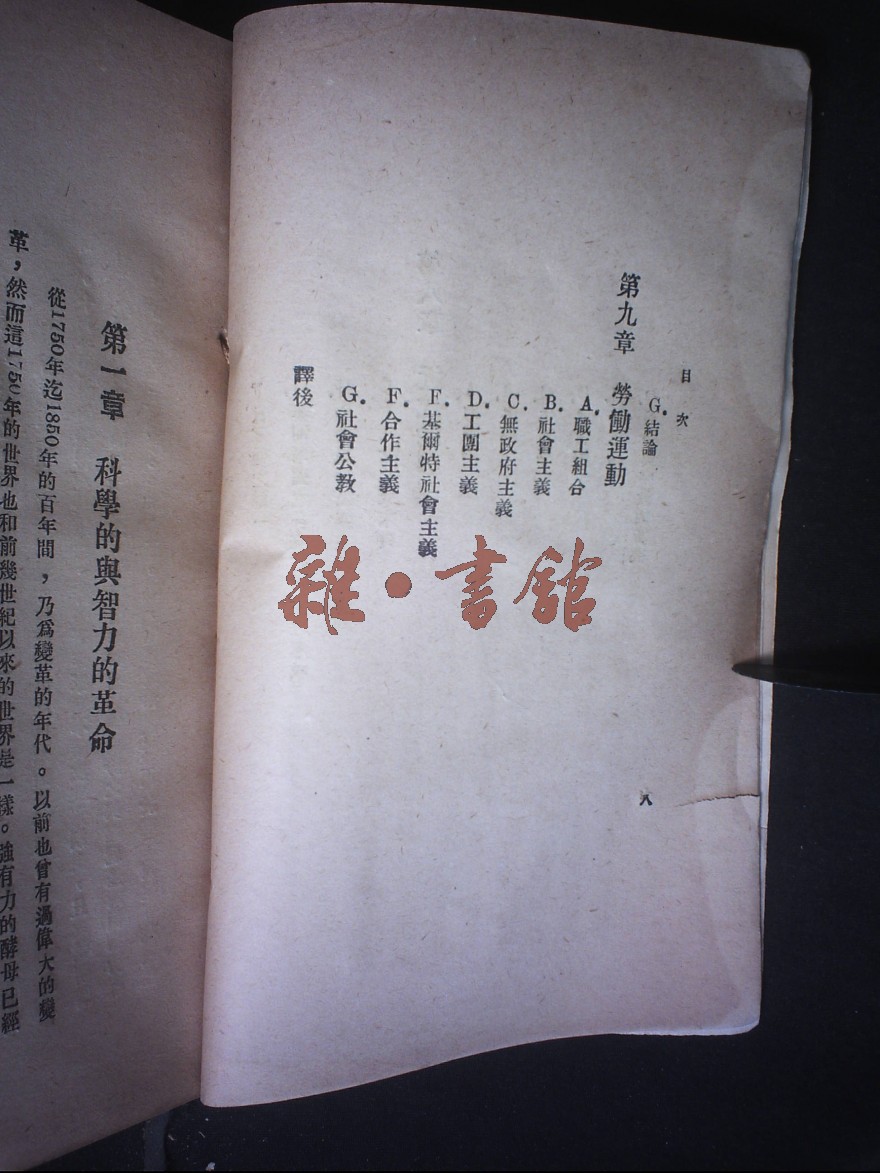 目次
G.結論
第九章 勞働運動
A.職工組合
B.社會主義
C.無政府主義
D.工團主義
F.基爾特社會主義
F.合作主義
G.社會公教
譯後
八
雜·書館
第一章 科學的與智力的革命
從1750年迄1850年的百年間，乃爲變革的年代。以前也曾有過偉大的變
革，然而這1750年的世界也和前幾世紀以來的世界是一樣。強有力的酵母已經